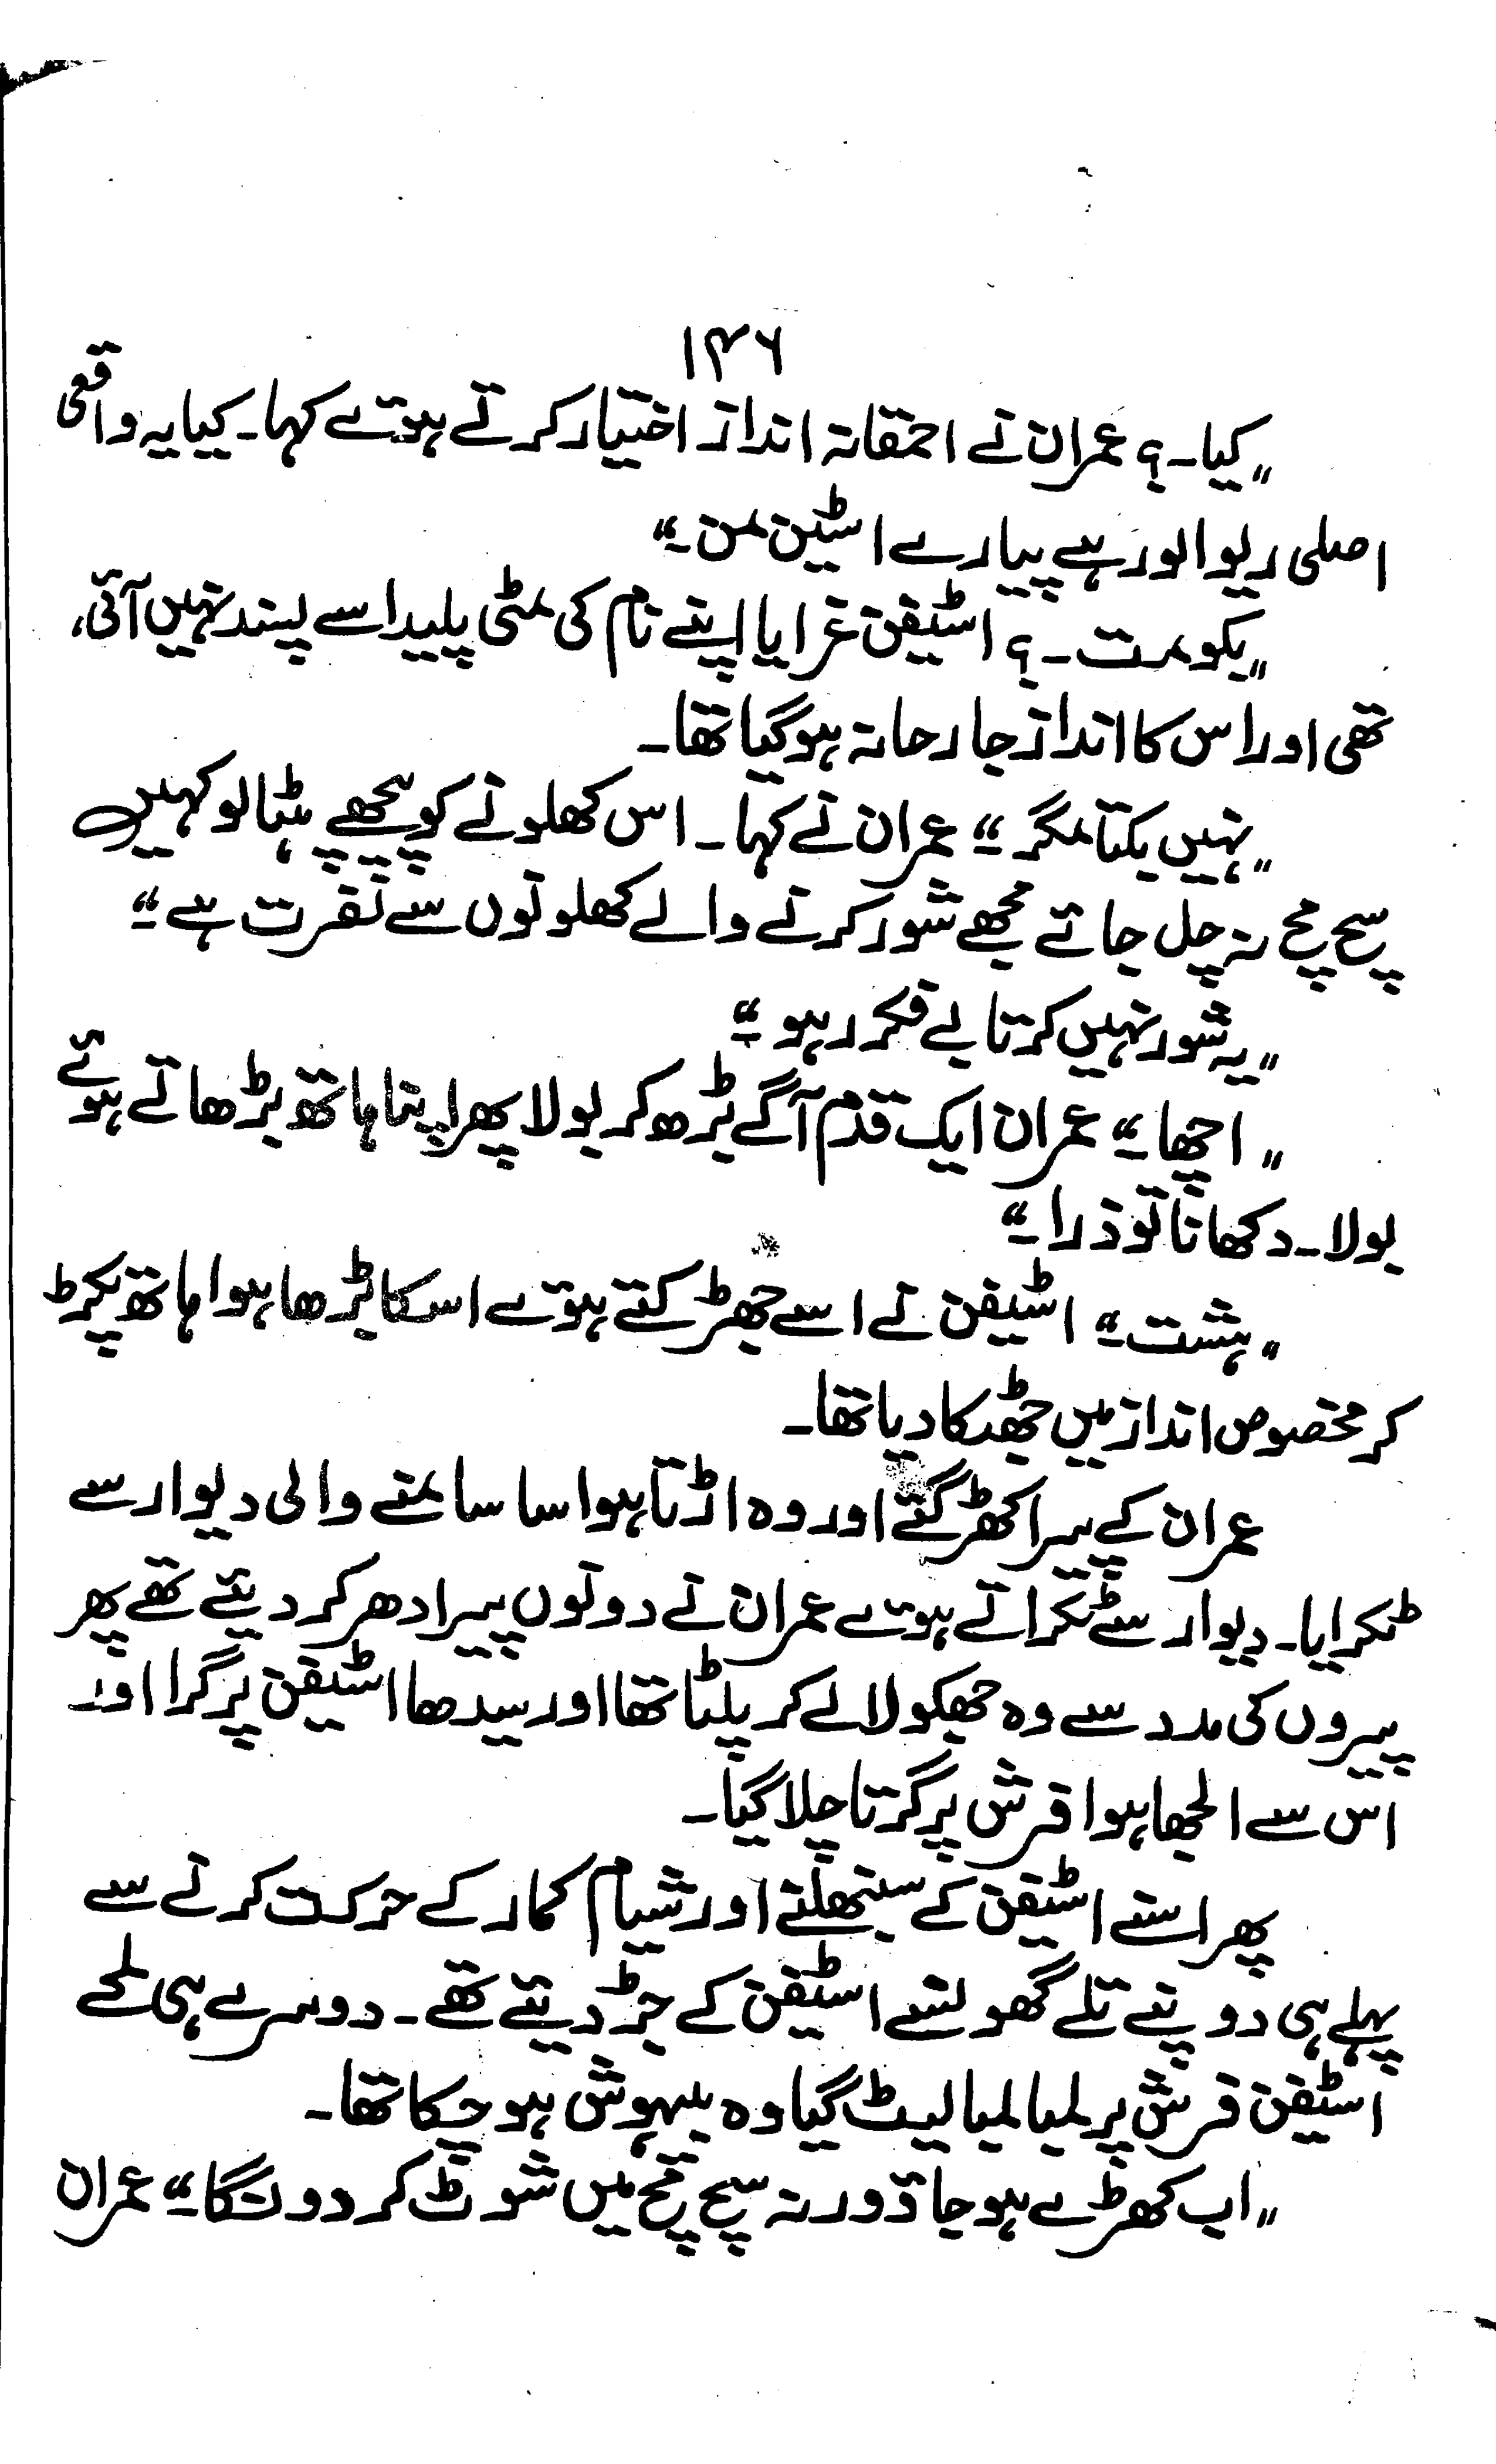 ۱۴۶
"کیا۔؟ عمران نے احمقانہ انداز اختیار کرتے ہوئے کہا۔ کیا یہ واقعی
اصلی ریوالور ہے پیارے اسٹین من۔"
"بکو مت۔؟ اسٹیفن غرایا اپنے نام کی مٹی پلید اسے پسند نہیں آئی،
تھی اور اس کا انداز جارحانہ ہو گیا تھا۔
"نہیں بکتا مگر۔" عمران نے کہا۔ اس کھلونے کو پیچھے ہٹا لو کہیں
سچ مچ نہ چل جائے مجھے شور کرنے والے کھلونوں سے نفرت ہے۔"
"یہ شور نہیں کرتا بے فکر رہو۔"
"اچھا۔" عمران ایک قدم آگے بڑھ کر بولا پھر اپنا ہاتھ بڑھاتے ہوئے
بولا۔ دکھانا تو ذرا۔"
"ہشت۔" اسٹیفن نے اسے جھڑکتے ہوئے اسکا بڑھا ہوا ہاتھ پکڑ
کر مخصوص انداز میں جھٹکا دیا تھا۔
عمران کے پیر اکھڑ گئے اور وہ اڑتا ہوا سا سامنے والی دیوار سے
ٹکرایا۔ دیوار سے ٹکراتے ہوئے عمران نے دونوں پیر ادھر کر دیئے تھے پھر
پیروں کی مدد سے وہ جھکولا لے کر پلٹا تھا اور سیدھا اسٹیفن پر گرا اور
اس سے الجھا ہوا فرش پر گرتا چلا گیا۔
پھر اسنے اسٹیفن کے سنبھلنے اور شیام کمار کے حرکت کرنے سے
پہلے ہی دو نپے تلے گھونسے اسٹیفن کے جڑ دیئے تھے۔ دوسرے ہی لمحے
اسٹیفن فرش پر لمبا لمبا لیٹ گیا وہ بیہوش ہو چکا تھا۔
"اب کھڑے ہو جاؤ ورنہ سچ مچ میں شوٹ کر دونگا۔" عمران